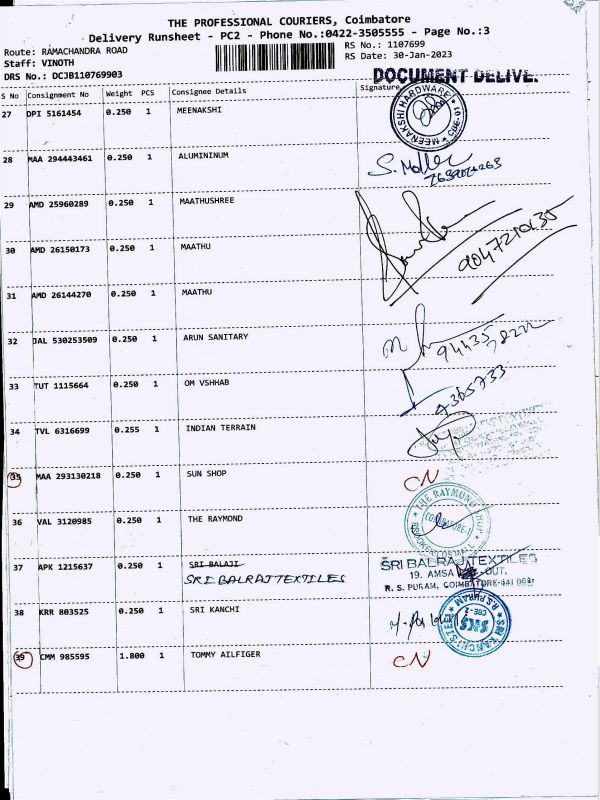 THE PROFESSIONAL COURIERS, Coimbatore
Delivery Runsheet - PC2 - Phone No.:0422-3505555 - Page No.:3
Route: RAMACHANDRA ROAD RS No.: 1107699
Staff: VINOTH RS Date: 30-Jan-2023
DRS No.: DCJB110769903
DOCUMENT DELIVE.
S No Consignment No Weight PCS Consignee Details Signature
27 DPI 5161454 0.250 1 MEENAKSHI
MEENAKSHI HARDWARE CBE-01
28 MAA 294443461 0.250 1 ALUMININUM
29 AMD 25960289 0.250 1 MAATHUSHREE
9047210635
30 AMD 26150173 0.250 1 MAATHU
31 AMD 26144270 0.250 1 MAATHU
32 JAL 530253509 0.250 1 ARUN SANITARY
94435
33 TUT 1115664 0.250 1 OM VSHHAB
7365733
34 TVL 6316699 0.255 1 INDIAN TERRAIN
35 MAA 293130218 0.250 1 SUN SHOP CN
36 VAL 3120985 0.250 1 THE RAYMOND
THE RAYMOND SHOP
37 APK 1215637 0.250 1 SRI BALAJI
SRI BALRAJ TEXTILES
SRI BALRAJ TEXTILES
19, AMSA OUT,
R. S. PURAM, COIMBATORE-641 002
38 KRR 803525 0.250 1 SRI KANCHI
SKS
R.S PURAM CBE-2
39 CMM 985595 1.800 1 TOMMY AILFIGER CN